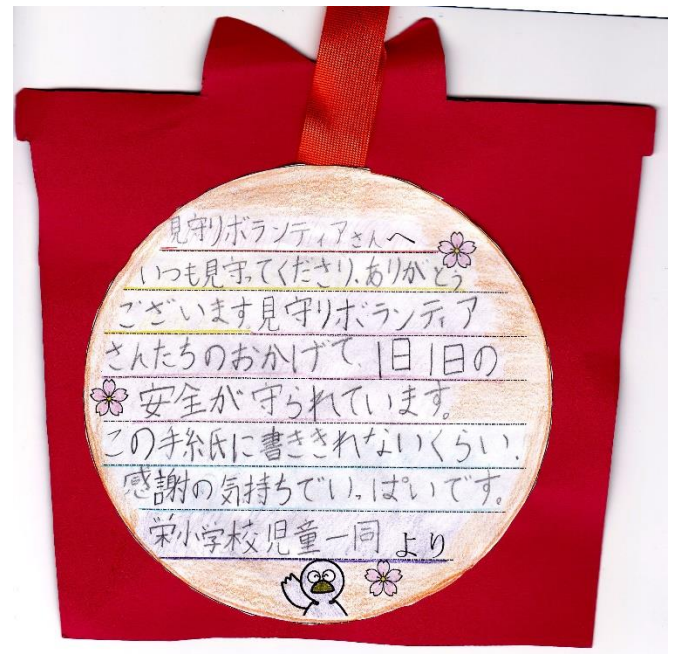 見守りボランティアさんへ
いつも見守ってくださり、ありがとう
ございます。見守りボランティア
さんたちのおかげで、1日1日の
安全が守られています。
この手紙に書ききれないくらい、
感謝の気持ちでいっぱいです。
栄小学校児童一同より